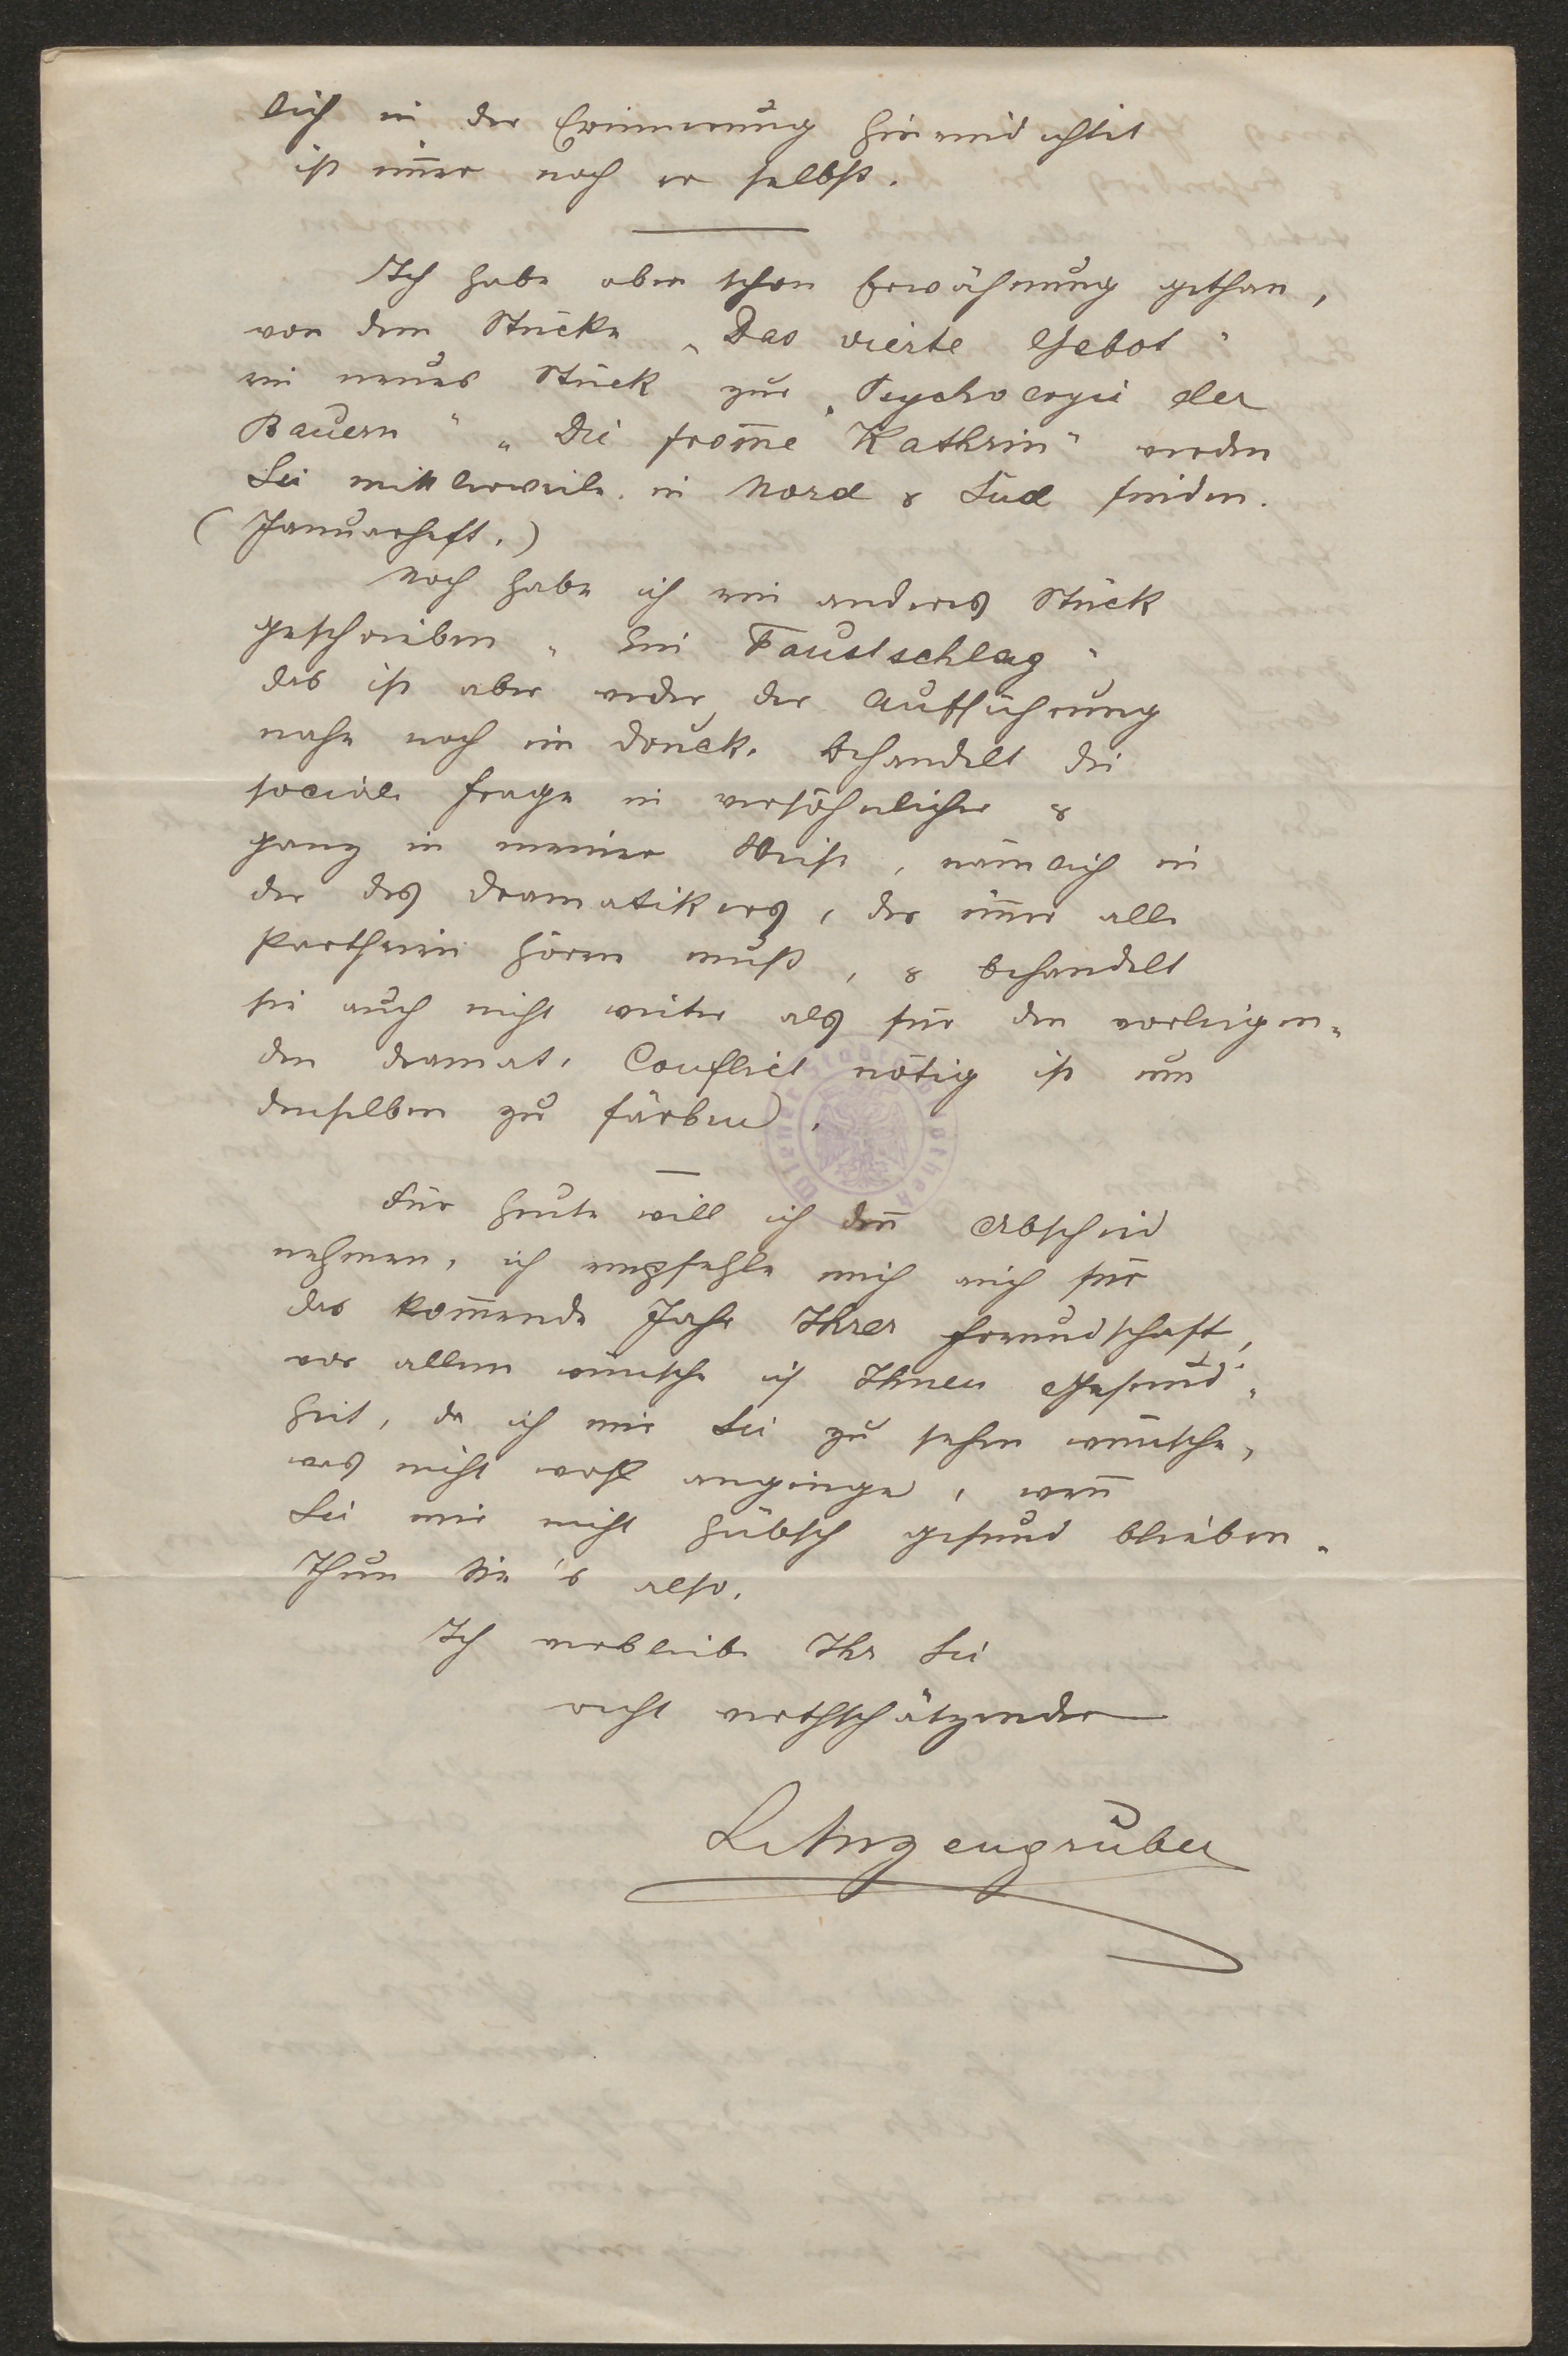 lich in der Erinnerung hineindichtet
ist im̅er noch er selbst.
Ich habe oben schon Erwähnung gethan,
von dem Stücke „Das vierte Gebot"
ein neues Stück zur „Psychologie der
Bauern" „Die from̅e Kathrin" werden
Sie mittlerweile in Nord & Süd finden.
(Januarheft.)
Noch habe ich ein anderes Stück
geschrieben „Ein Faustschlag"
das ist aber weder der Aufführung
nahe noch im Druck. Behandelt die
sociale Frage in versöhnlicher &
ganz in meiner Weise, nämlich in
der des Dramatikers, der im̅er alle
Partheien hören muß, & behandelt
sie auch nicht weiter als für den vorliegen-
den dramat. Conflict nötig ist um
denselben zu färben.
Für heute will ich den̅ Abschied
nehmen, ich empfehle mich auch für
das kom̅ende Jahr Ihrer Freundschaft,
vor allem wünsche ich Ihnen Gesund-
heit, da ich mir Sie zu sehen wünsche,
was nicht wohl anginge, wen̅
Sie mir nicht hübsch gesund blieben.
Thun Sie's also.
Ich verbleibe Ihr Sie
recht werthschätzender
L. Anzengruber
Wiener Stadtbibliothek